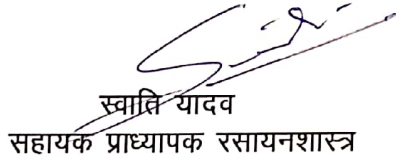 स्वाति यादव
सहायक प्राध्यापक रसायनशास्त्र